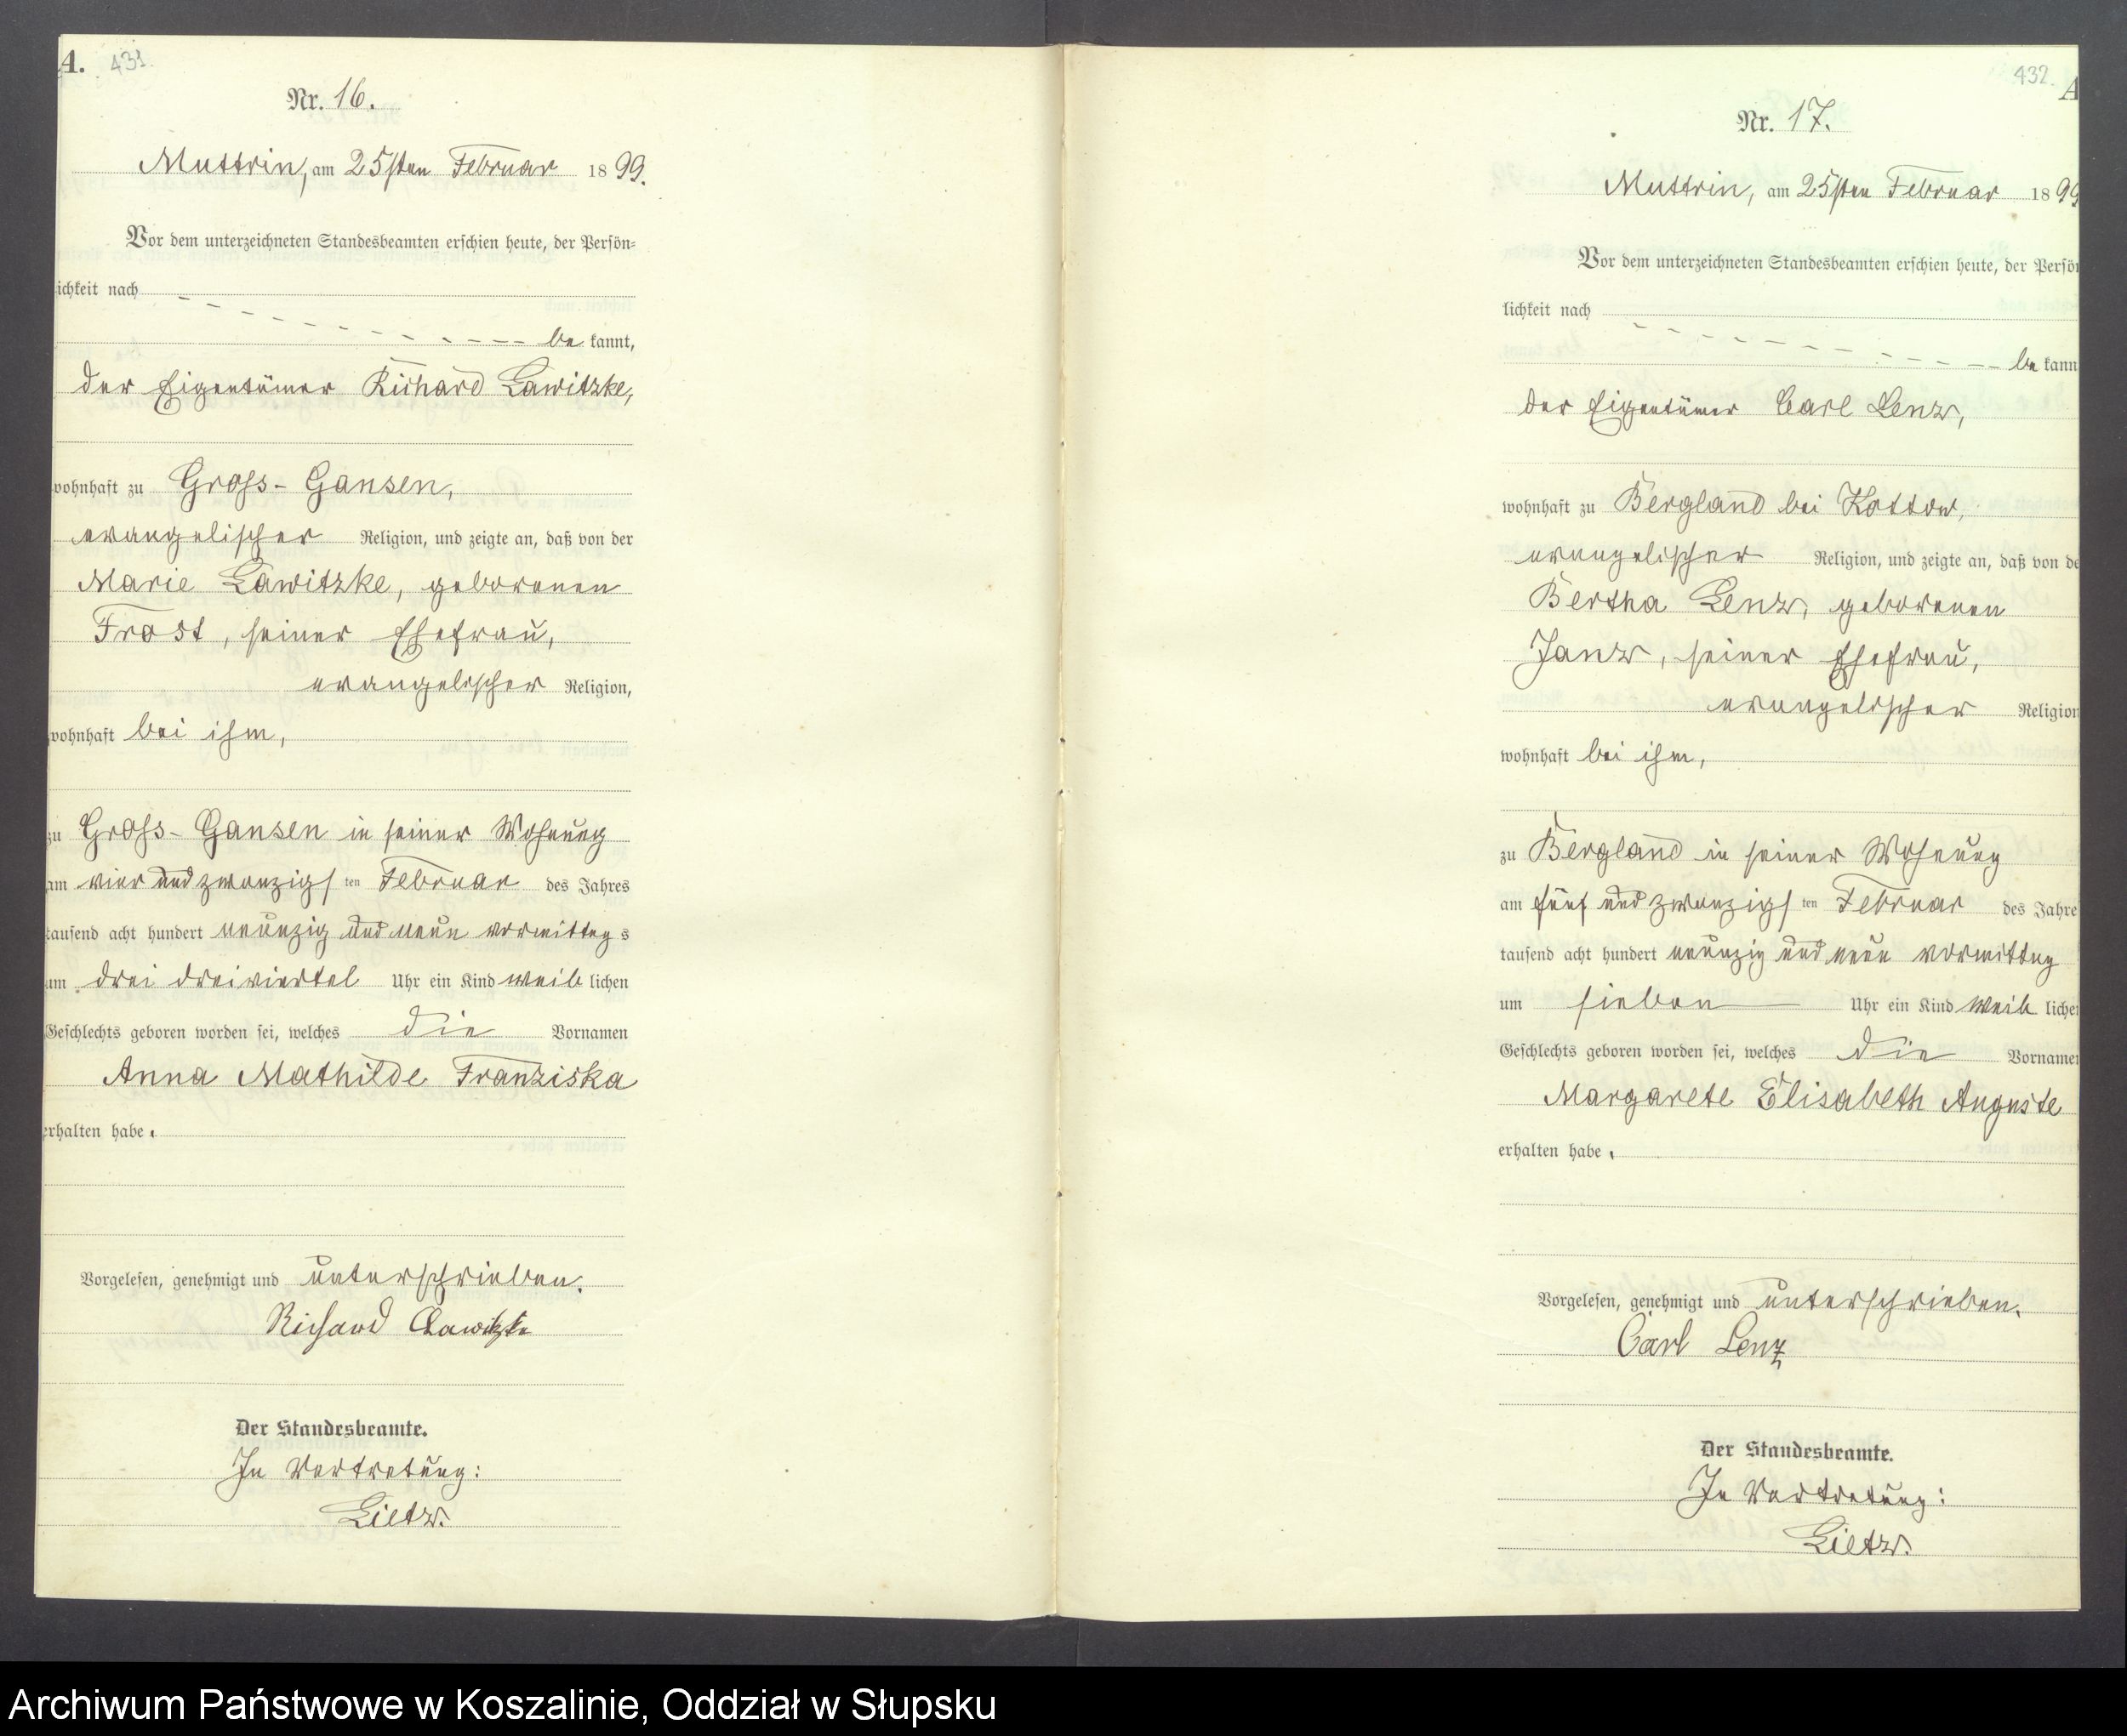 A. 431.
Nr. 16.
Muttrin, am 25sten Februar 1899.
Vor dem unterzeichneten Standesbeamten erschien heute, der Persön-
ichkeit nach
be kannt,
der Eigentümer Richard Lawitzke,
wohnhaft zu Gross-Gansen,
evangelischer Religion, und zeigte an, daß von der
Marie Lawitzke, geborenen
Frost, seiner Ehefrau,
evangelischer Religion,
wohnhaft bei ihm,
zu Gross-Gansen in seiner Wohnung
am vier und zwanzigs ten Februar des Jahres
tausend acht hundert neunzig und neun vormittags
um drei dreiviertel Uhr ein Kind weib lichen
Geschlechts geboren worden sei, welches die Vornamen
Anna Mathilde Franziska
erhalten habe.
Vorgelesen, genehmigt und unterschrieben.
Richard Lawitzke
Der Standesbeamte.
In Vertretung:
Lietz.
432. A
Nr. 17.
Muttrin, am 25sten Februar 1899
Vor dem unterzeichneten Standesbeamten erschien heute, der Persön
lichkeit nach
be kann
der Eigentümer Carl Lenz,
wohnhaft zu Bergland bei Kottow,
evangelischer Religion, und zeigte an, daß von de
Bertha Lenz, geborenen
Janz, seiner Ehefrau,
evangelischer Religion
wohnhaft bei ihm,
zu Bergland in seiner Wohnung
am fünf und zwanzigs ten Februar des Jahre
tausend acht hundert neunzig und neun vormittag
um sieben Uhr ein Kind weib liche
Geschlechts geboren worden sei, welches die Vorname
Margarete Elisabeth Auguste
erhalten habe.
Vorgelesen, genehmigt und unterschrieben.
Carl Lenz
Der Standesbeamte.
In Vertretung:
Lietz.
Archiwum Państwowe w Koszalinie, Oddział w Słupsku